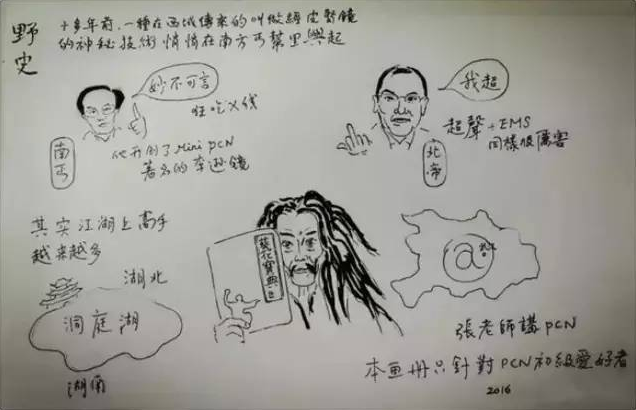 野史
十多年前,一種在西域傳來的叫做經皮腎鏡
的神秘技術悄悄在南方丐幫里興起
妙不可言
狂吃X线
南丐
他开创了Mini PCN
著名的李逊鏡
我超
超聲+EMS
同樣很厲害
北帝
其实江湖上高手
越来越多
湖北
洞庭湖
湖南
葵花寶典
@
張老師講PCN
本画册只針對PCN初級愛好者
2016